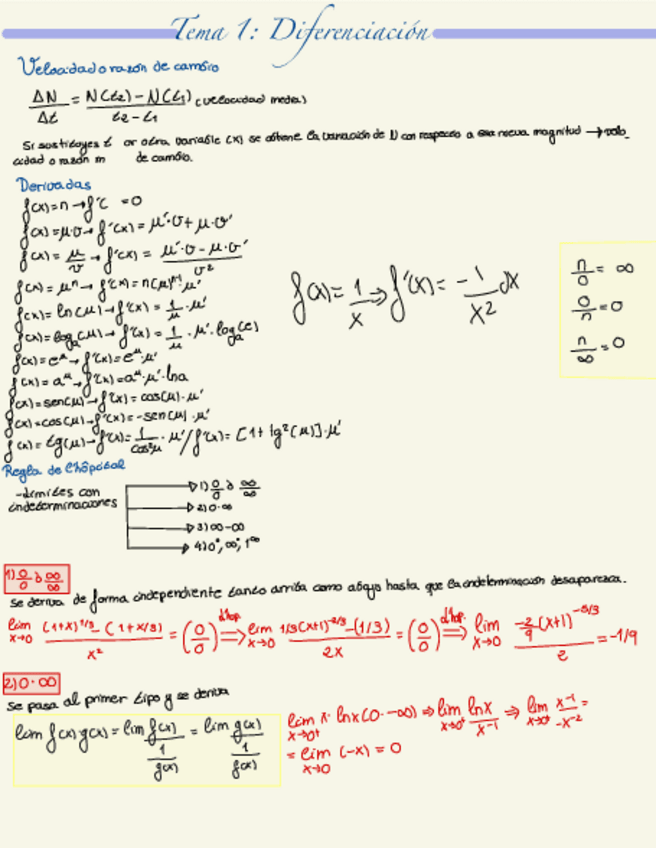 Tema 1: Diferenciación
Velocidad o razón de cambio
ΔN/Δt = N(t₂) − N(t₁) / t₂ − t₁ (velocidad media)
Si sustituyes t or otra variable (x) se obtiene la variación de N con respecto a esa nueva magnitud → velo_
cidad o razón m de cambio.
Derivadas
f(x) = n → f'( = 0
f(x) = μ·v → f'(x) = μ'·v + μ·v'
f(x) = μ/v → f'(x) = μ'·v − μ·v' / v²
f(x) = μⁿ → f'(x) = n(μ)ⁿ⁻¹·μ'
f(x) = ln(μ) → f'(x) = 1/μ · μ'
f(x) = logₐ(μ) → f'(x) = 1/μ · μ'·logₐ(e)
f(x) = e^μ → f'(x) = e^μ·μ'
f(x) = a^μ → f'(x) = a^μ·μ'·lna
f(x) = sen(μ) → f'(x) = cos(μ)·μ'
f(x) = cos(μ) → f'(x) = −sen(μ)·μ'
f(x) = tg(μ) → f'(x) = 1/cos²μ · μ' / f'(x) = [1 + tg²(μ)]·μ'
f(x) = 1/x ⇒ f'(x) = −1/x² dx
n/0 = ∞
0/n = 0
n/∞ = 0
Regla de L'hôpital
-Límites con
indeterminaciones
1) 0/0 ò ∞/∞
2) 0·∞
3) ∞−∞
4) 0°, ∞°, 1^∞
1) 0/0 ò ∞/∞
Se deriva de forma independiente tanto arriba como abajo hasta que la indeterminación desaparezca.
lim x→0 (1+x)^1/3 − (1+x/3) / x² = (0/0) ⇒ l'hop. lim x→0 1/3(x+1)^−2/3 − (1/3) / 2x = (0/0) ⇒ l'hop. lim x→0 −2/9 (x+1)^−5/3 / 2 = −1/9
2) 0·∞
Se pasa al primer tipo y se deriva
lim f(x)·g(x) = lim f(x) / 1/g(x) = lim g(x) / 1/f(x)
lim x→0⁺ x·lnx (0·−∞) ⇒ lim x→0⁺ lnx / x⁻¹ ⇒ lim x→0⁺ x⁻¹ / −x⁻² =
= lim x→0 (−x) = 0